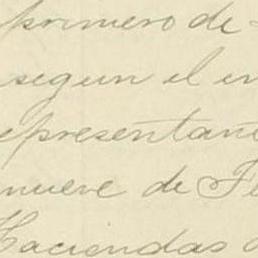 primero de
segun el in
representan
nueve de Fe
Haciendas